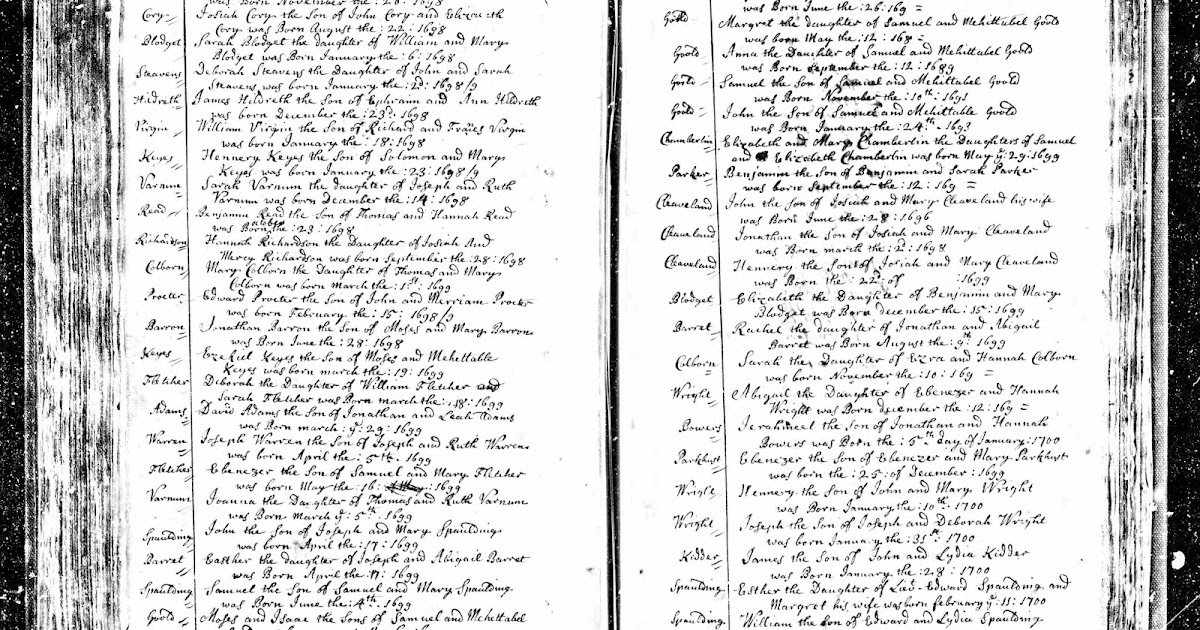 was Born November the : 28 : 1698
Cory Josiah Cory the Son of John Cory and Elizabeth
Cory was Born August the : 22 : 1698
Blodget Sarah Blodget the daughter of William and Mary
Blodget was Born January the : 6 : 1698
Steavens Deborah Steavens the Daughter of John and Sarah
Stevens was born January the : 2 : 1698/9
Hildreth James Hildreth the Son of Ephraim and Ann Hildreth
was born December the : 23 : 1698
Virgin William Virgin the Son of Richard and Virgin
was born January the : 18 : 1698
Keyes Hennery Keyes the Son of Solomon and Mary
Keyes was born January the : 23 : 1698/9
Varnum Sarah Varnum the daughter of Joseph and Ruth
Varnum was born December the : 14 : 1698
Read Benjamin Read the Son of Thomas and Hannah Read
was Born october the : 23 : 1698
Richardson Hannah Richardson the Daughter of Josiah And
Mercy Richardson was born September the : 28 : 1698
Colborn Mary Colborn the Daughter of Thomas and Mary
Colborn was born march the : 1st : 1699
Procter Edward Procter the Son of John and Merriam Procter
was born February the : 15 : 1698/9
Barron Jonathan Barron the Son of Moses and Mary Barron
was Born June the : 28 : 1698
Keyes Ezekiel Keyes the Son of Moses and Mehettable
Keyes was born march the : 19 : 1699
Fletcher Deborah the Daughter of William Fletcher and
Sarah Fletcher was Born march the : 18 : 1699
Adams David Adams the Son of Jonathan and Leah Adams
was Born march : ye : 29 : 1699
Warren Joseph Warren the Son of Joseph and Ruth Warren
was born April the : 5th : 1699
Fletcher Ebenezer the Son of Samuel and Mary Fletcher
was born May the : 16 : 1699
Varnum Joanna the Daughter of Thomas and Ruth Varnum
was Born March ye : 5th : 1699
Spaulding John the Son of Joseph and Mary Spaulding
was born April the : 17 : 1699
Barret Easther the daughter of Joseph and Abigail Barret
was Born April the : 17 : 1699
Spaulding Samuel the Son of Samuel and Mary Spaulding
was Born June the : 4th : 1699
Goold Moses and Isaac the Sons of Samuel and Mehettabel
was Born June the : 26 : 169 =
Goold Margret the daughter of Samuel and Mehittabel Goold
was born May the : 12 : 168 =
Goold Anna the Daughter of Samuel and Mehittabel Goold
was Born September the : 12 : 1689
Goold Samuel the Son of Samuel and Mehittable Goold
was Born November the : 10th : 1691
Goold John the Son of Samuel and Mehittable Goold
was Born January the : 24th : 1693
Chamberlin Elizabeth and Mary Chamberlin the Daughters of Samuel
and Elizebeth Chamberlin was born May ye : 29 : 1699
Parker Benjamin the Son of Benjamin and Sarah Parker
was born September the : 12 : 169 =
Cleaveland John the Son of Josiah and Mary Cleaveland his wife
was Born June the : 28 : 1696
Cleaveland Jonathan the Son of Josiah and Mary Cleaveland
was Born march the : 2 : 1698
Cleaveland Hennery the Son of Josiah and Mary Cleaveland
was Born the : 22 : of : 1699
Blodget Elizabeth the Daughter of Benjamin and Mary
Blodget was Born december the : 15 : 1699
Barret Rachel the daughter of Jonathan and Abigail
Barret was Born August the : 9th : 1699
Colborn Sarah the Daughter of Ezra and Hannah Colborn
was born November the : 10 : 169 =
Wright Abigail the Daughter of Ebenezer and Hannah
Wright was Born december the : 12 : 169 =
Bowers Jerahmeel the Son of Jonathan and Hannah
Bowers was Born the : 5th Day of January : 1700
Parkhust Ebenezer the Son of Ebenezer and Mary Parkhust
was born the : 25 : of December : 1699
Wright Hennery the Son of John and Mary Wright
was Born January the : 10th : 1700
Wright Joseph the Son of Joseph and Deborah Wright
was born January the : 31st : 1700
Kidder James the Son of John and Lydia Kidder
was Born January the : 28 : 1700
Spaulding Esther the Daughter of Lieut Edward Spaulding and
Margret his wife was born february ye : 11 : 1700
Spaulding William the Son of Edward and Lydia Spaulding